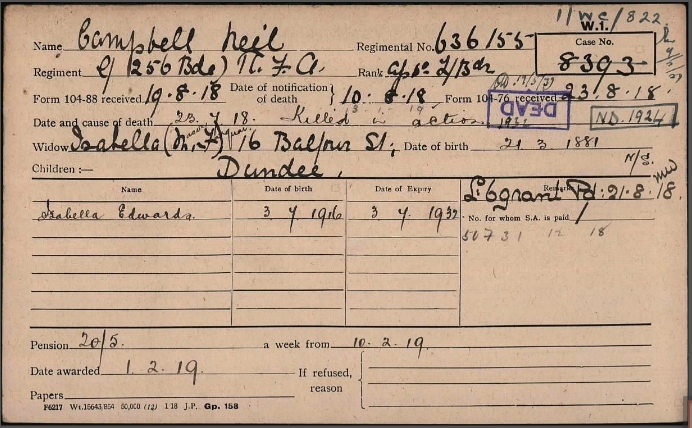 1/WC/822.
W.1.
Name Campbell Neil Regimental No. 636155 Case No. 8393
Regiment (256 Bde) R.F.A. Rank
Form 104-88 received 19.8.18 Date of notification of death 10.8.18 Form 104-76 received 23.8.18.
Date and cause of death 23.7.18. Killed in action DEAD ND.1924
Widow Isabella 16 Balfour St; Date of birth 21.3.1881
Children :— Dundee.
Name Date of birth Date of Expiry Remarks
£6 grant Pd. 21.8.18.
Isabella Edwards. 3 7 1916 3 7. 1932 No. for whom S.A. is paid 1
50731 12 18
Pension 20/5. a week from 10.2.19.
Date awarded 1.2.19. If refused, reason
Papers
F6217 Wt.15643/854 50,000 (12) 1 18 J.P. Gp. 158